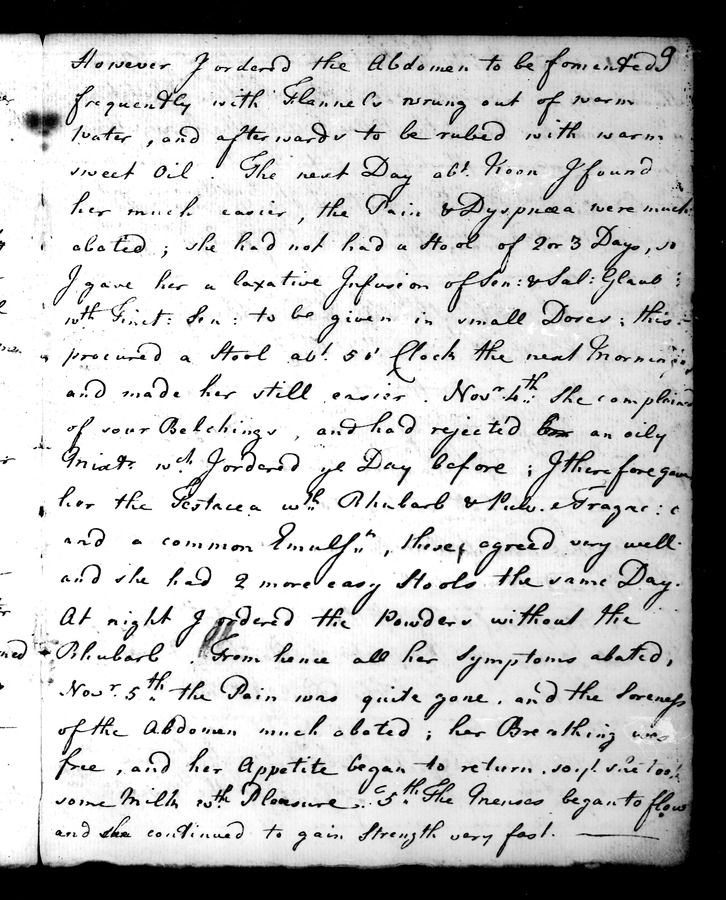 9
However I orderd the Abdomen to be fomented
frequently with Flannels wrung out of warm
Water, and afterwards to be rubed with warm
sweet Oil. The next Day abt. Noon I found
her much easier, the Pain & Dyspnœa were much
abated; she had not had a Stool of 2 or 3 Days, so
I gave her a laxative Infusion of Sen: & Sal: Glaub:
wth Tinct: Sen: to be given in small Doses; this
procured a Stool abt. 5 o' Clock the next Morning
and made her still easier. Novr. 4th. She complain'd
of sour Belchings, and had rejected an oily
Mixtr. wch. I ordered ye Day before; I therefore gave
her the Testacea wth. Rhubarb & Pulv. e Tragac: c
and a common Emulsn., these agreed very well
and she had 2 more easy Stools the same Day.
At night I ordered the Powders without the
Rhubarb. From hence all her Symptoms abated,
Novr. 5th. the Pain was quite gone, and the Soreness
of the Abdomen much abated; her Breathing was
free, and her Appetite began to return, so yt. she took
some Milk wth Pleasure. 5th. The Menses began to flow
and she continued to gain Strength very fast.